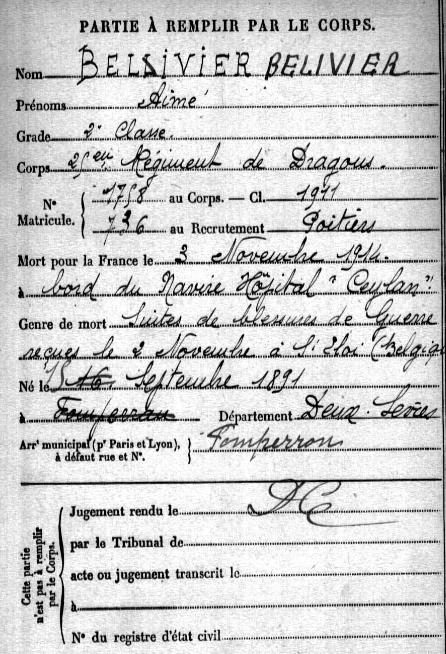 PARTIE À REMPLIR PAR LE CORPS.
Nom BELSIVIER BELIVIER
Prénoms Aimé
Grade 2e Classe.
Corps 25eme Régiment de Dragons.
N° Matricule. { 1758 au Corps. — Cl. 1911
736 au Recrutement Poitiers
Mort pour la France le 3 Novembre 1914.
à bord du Navire Hôpital "Ceylan".
Genre de mort Suites de blessures de Guerre
reçues le 2 Novembre à St Eloi (Belgiqu
Né le Septembre 1891
à Fomperrau Département Deux-Sèvres
Arrt municipal (pr Paris et Lyon), à défaut rue et N°. } Fomperron
Cette partie n'est pas à remplir par le Corps.
Jugement rendu le
par le Tribunal de
acte ou jugement transcrit le
à
N° du registre d'état civil